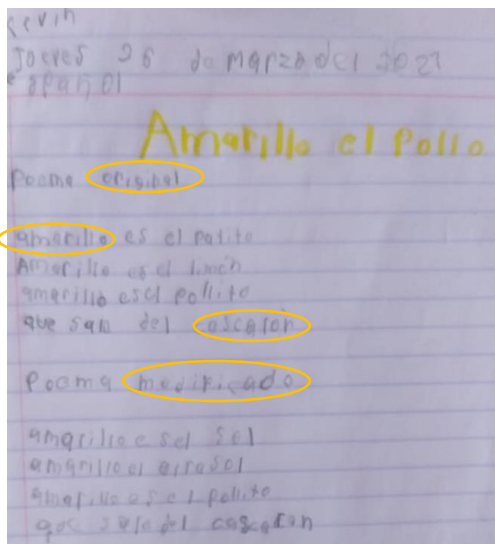 Kevin
Jueves 26 de marzo del 2021
español
Amarillo el Pollo
Poema original
amarillo es el patito
Amarillo es el limón
amarillo es el pollito
que sale del cascaron
Poema modificado
amarillo es el sol
amarillo el girasol
amarillo es el pollito
que sale del cascaron